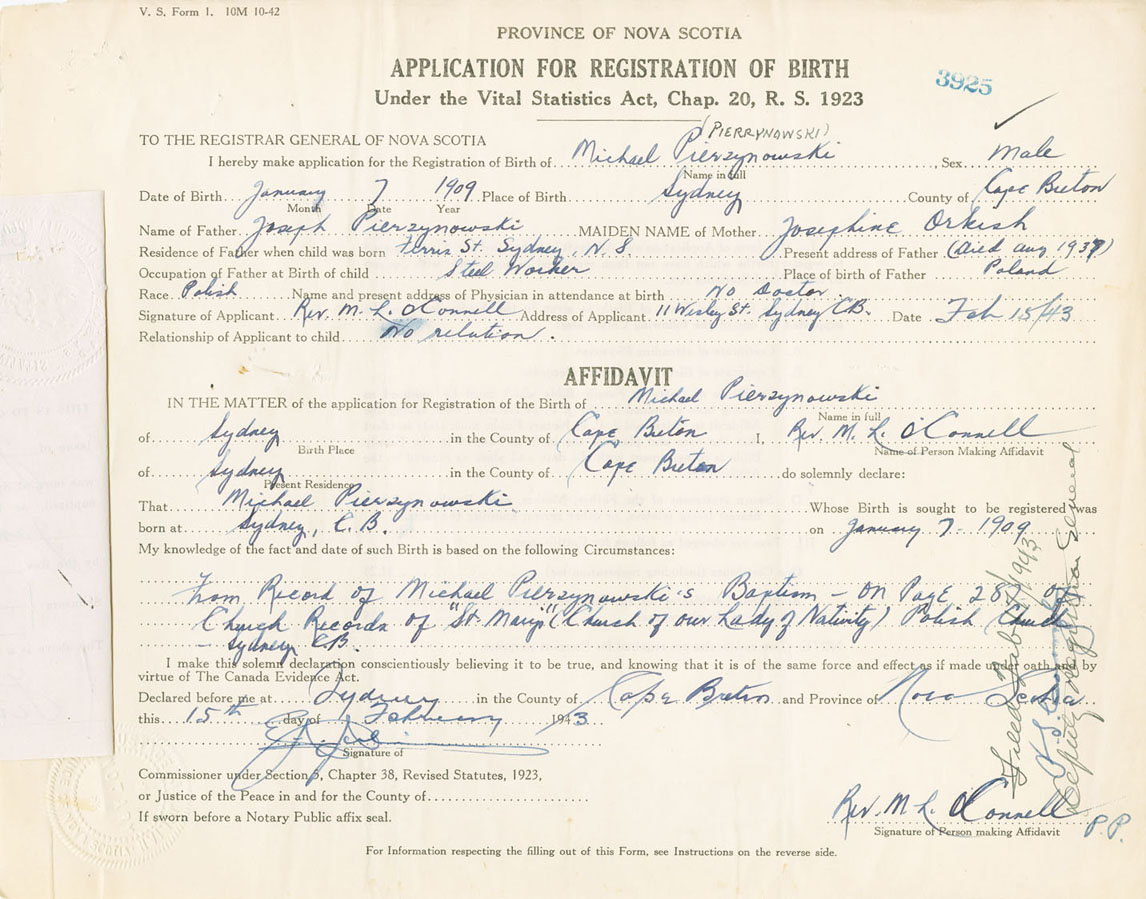 V. S. Form 1. 10M 10-42
PROVINCE OF NOVA SCOTIA
APPLICATION FOR REGISTRATION OF BIRTH
3925
Under the Vital Statistics Act, Chap. 20, R. S. 1923
(PIERRYNOWSKI)
TO THE REGISTRAR GENERAL OF NOVA SCOTIA
I hereby make application for the Registration of Birth of Michael Pierzynowski, Sex Male
Name in full
Date of Birth January 7 1909 Place of Birth Sydney County of Cape Breton
Month Date Year
Name of Father Joseph Pierzynowski MAIDEN NAME of Mother Josephine Orkish
Residence of Father when child was born Ferris St. Sydney, N. S. Present address of Father (Died Aug 1937)
Occupation of Father at Birth of child Steel Worker Place of birth of Father Poland
Race Polish Name and present address of Physician in attendance at birth No Doctor
Signature of Applicant Rev. M. L. O'Connell Address of Applicant 11 Wesley St. Sydney C.B. Date Feb 15/43
Relationship of Applicant to child No relation.
AFFIDAVIT
IN THE MATTER of the application for Registration of the Birth of Michael Pierzynowski
Name in full
of Sydney in the County of Cape Breton I, Rev. M. L. O'Connell
Birth Place Name of Person Making Affidavit
of Sydney in the County of Cape Breton do solemnly declare:
Present Residence
That Michael Pierzynowski Whose Birth is sought to be registered was
born at Sydney, C.B. on January 7 - 1909
My knowledge of the fact and date of such Birth is based on the following Circumstances:
From Record of Michael Pierzynowski's Baptism - on Page 28 of
Church Records of "St. Mary's" (Church of our Lady of Nativity) Polish Church
- Sydney C.B.
I make this solemn declaration conscientiously believing it to be true, and knowing that it is of the same force and effect as if made under oath and by
virtue of The Canada Evidence Act.
Declared before me at Sydney in the County of Cape Breton and Province of Nova Scotia
this 15th day of February 1943
Signature of
Commissioner under Section 5, Chapter 38, Revised Statutes, 1923,
or Justice of the Peace in and for the County of
If sworn before a Notary Public affix seal.
Rev. M. L. O'Connell P.P.
Signature of Person making Affidavit
For Information respecting the filling out of this Form, see Instructions on the reverse side.
Filed Feb 1943
Deputy Registrar General